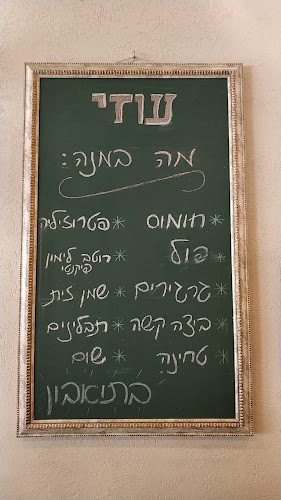 עוזי
מה במנה:
* חומוס
* פול
* גרגירים
* ביצה קשה
* טחינה
* פטרוזיליה
* רוטב לימון
פיקנטי
* שמן זית
* תבלינים
* שום
בתיאבון